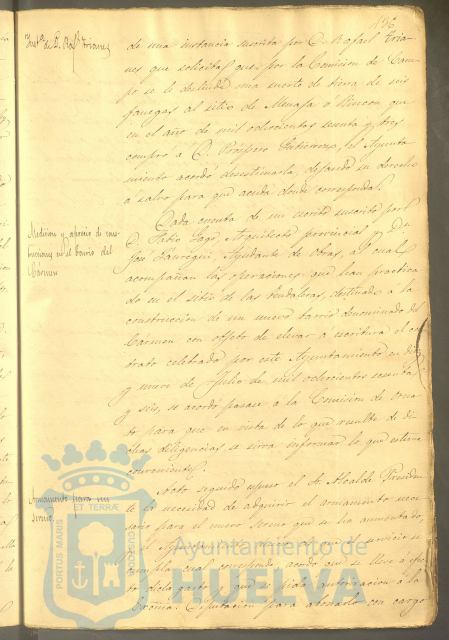 196
Inst.ª de D. Raf.l Trianes
de una instancia suscrita por D. Rafael Tria-
nes que solicita que por la Comision de Cam-
po se le deslinde una suerte de tierra de seis
fanegas al sitio de Menaja o Rincon que
en el año de mil ochocientos sesenta y tres
compró á D. Prospero Gutierrez, el Ayunta-
miento acordo desestimarla, dejando su derecho
á salvo para que acuda donde corresponda.
Medicion y aprecio de
en el barrio del
Cármen
Dada cuenta de un escrito suscrito por
D. Pablo Arquitecto provincial y D.
José Jauregui, Ayudante de Obras, al cual
acompañan las operaciones que han practica
do en el sitio de las Tendaleras, destinado á la
construccion de un nuevo barrio denominado del
Carmen con objeto de elevar á escritura el co
trato celebrado por este Ayuntamiento en diez
y nueve de Julio de mil ochocientos sesenta
y seis, se acordó pasase á la Comision de orna
to para que en vista de lo que resulte de di
chas diligencias se sirva informar lo que estime
conveniente.
Armamento para un
sereno
Acto seguido espuso el Sr. Alcalde Presiden
te la necesidad de adquirir el armamento nece
sario para el nuevo sereno que se ha aumentado
el servicio se
cual corresponde, acordó que se lleve á efec
to dicho gasto y que se pida autorizacion á la
Escma. Diputacion para abonarlo con cargo
PORTUS MARIS ET TERRÆ CUSTODIA
Ayuntamiento de
HUELVA